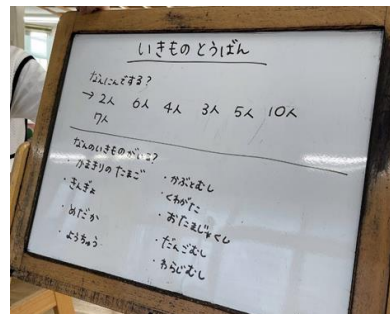 いきものとうばん
なんにんでする?
→2人 6人 4人 3人 5人 10人
7人
なんのいきものがいる?
・かまきりのたまご
・きんぎょ
・めだか
・ようちゅう
・かぶとむし
・くわがた
・おたまじゃくし
・だんごむし
・わらじむし